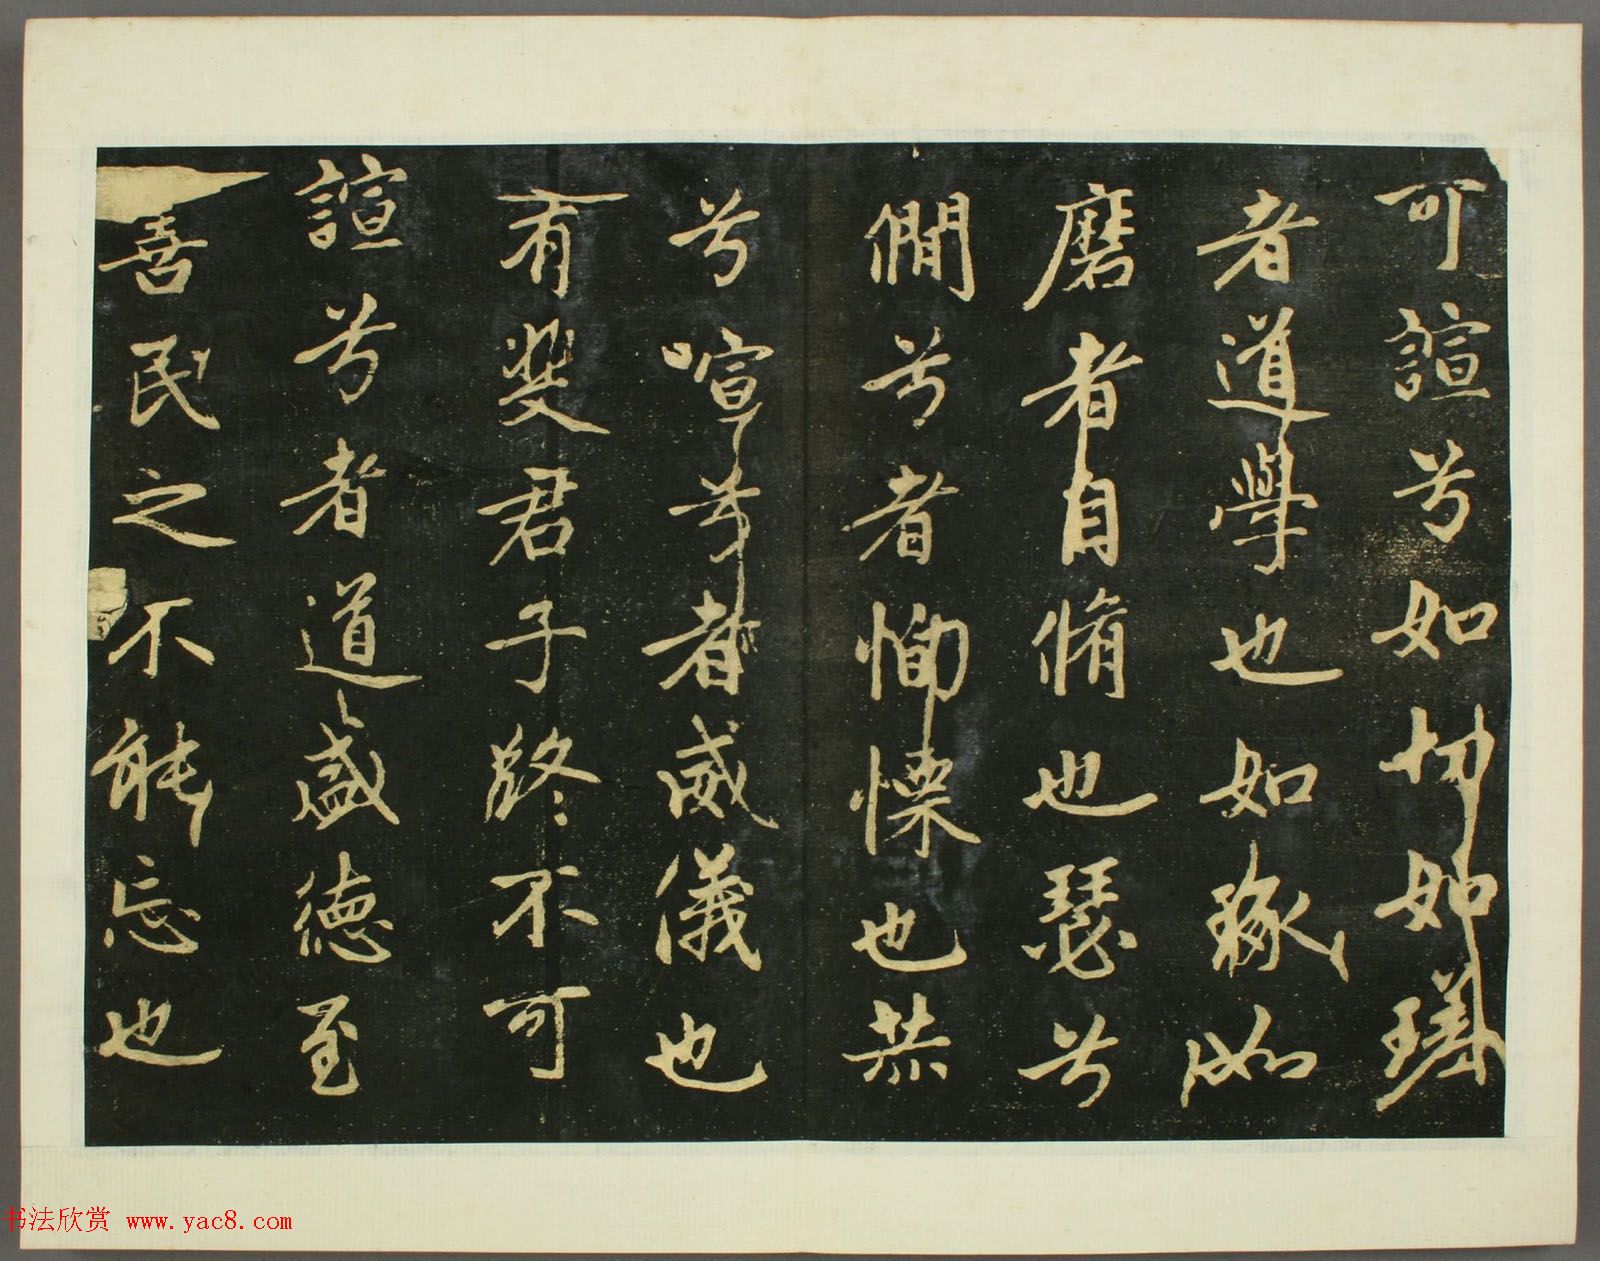 可諠兮如切如瑳
者道學也如琢如
磨者自脩也瑟兮
僩兮者恂慄也赫
兮喧兮者威儀也
有斐君子終不可
諠兮者道盛德至
善民之不能忘也
书法欣赏 www.yac8.com